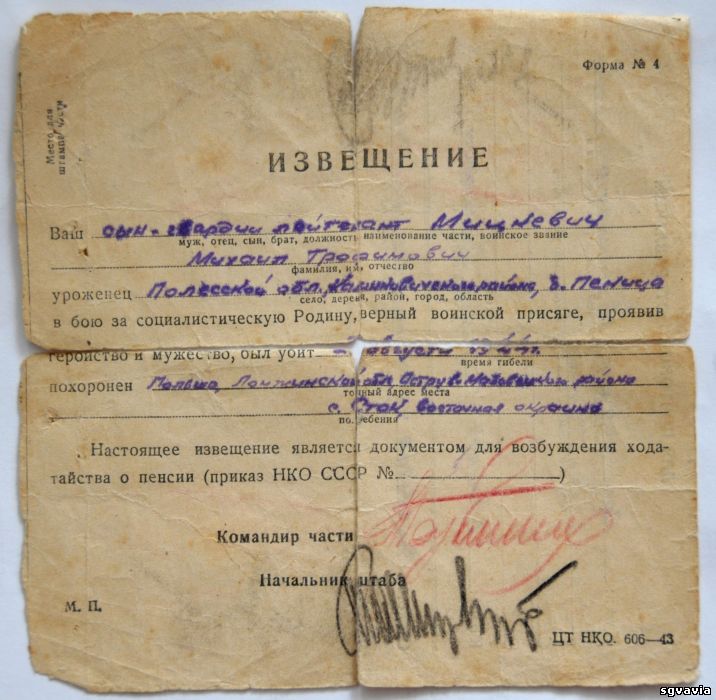 Форма № 4
Место для
штампа части
ИЗВЕЩЕНИЕ
Ваш сын-гвардии лейтенант Мицкевич
муж, отец, сын, брат, должность наименование части, воинское звание
Михаил Трофимович
фамилия, имя, отчество
уроженец Полесской обл. Калинковичского района, д. Пеница
село, деревня, район, город, область
в бою за социалистическую Родину, верный воинской присяге, проявив
геройство и мужество, был убит августа 1944г.
время гибели
похоронен Польша, Ломжинской обл. Остров-Мазовецкого района
точный адрес места
с. Сток, восточная окраина
погребения
Настоящее извещение является документом для возбуждения хода-
тайства о пенсии (приказ НКО СССР № )
Командир части
Начальник штаба
М. П.
ЦТ НКО. 606—43
sgvavia